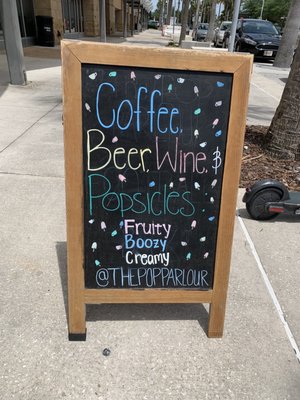 Coffee,
Beer, Wine, &
Popsicles
Fruity
Boozy
Creamy
@THEPOPPARLOUR